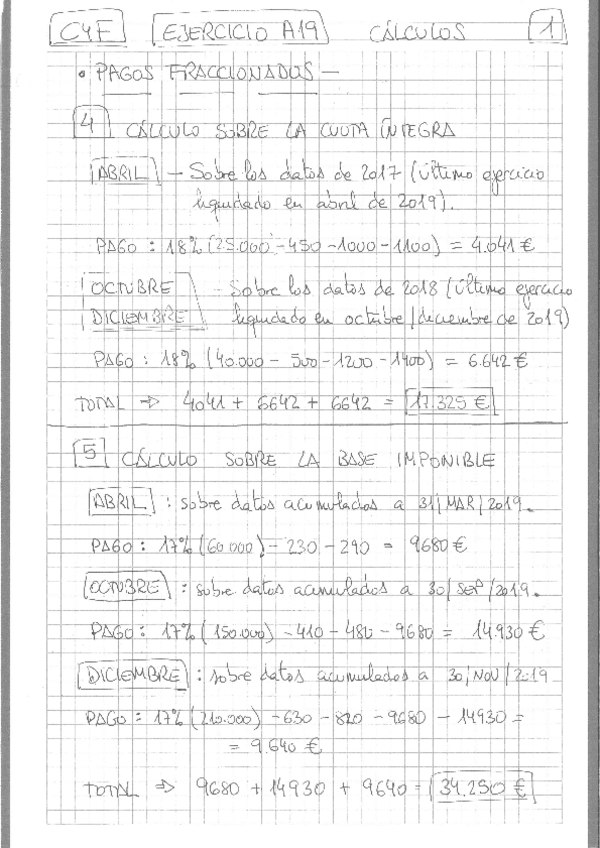 C4F EJERCICIO A19 CÁLCULOS 1
• PAGOS FRACCIONADOS —
4 CÁLCULO SOBRE LA CUOTA ÍNTEGRA
ABRIL — Sobre los datos de 2017 (último ejercicio
liquidado en abril de 2019).
PAGO : 18% (25.000 - 450 - 1000 - 1100) = 4.041 €
OCTUBRE - Sobre los datos de 2018 (último ejercicio
DICIEMBRE liquidado en octubre/diciembre de 2019)
PAGO : 18% (40.000 - 500 - 1200 - 1400) = 6.642 €
TOTAL ⇒ 4041 + 6642 + 6642 = 17.325 €
5 CÁLCULO SOBRE LA BASE IMPONIBLE
ABRIL : sobre datos acumulados a 31/MAR/2019.
PAGO : 17% (60.000) - 230 - 290 = 9680 €
OCTUBRE : sobre datos acumulados a 30/SEP/2019.
PAGO : 17% (150.000) - 410 - 480 - 9680 = 14.930 €
DICIEMBRE : sobre datos acumulados a 30/NOV/2019
PAGO : 17% (210.000) - 630 - 820 - 9680 - 14930 =
= 9.640 €
TOTAL ⇒ 9680 + 14930 + 9640 = 34.250 €